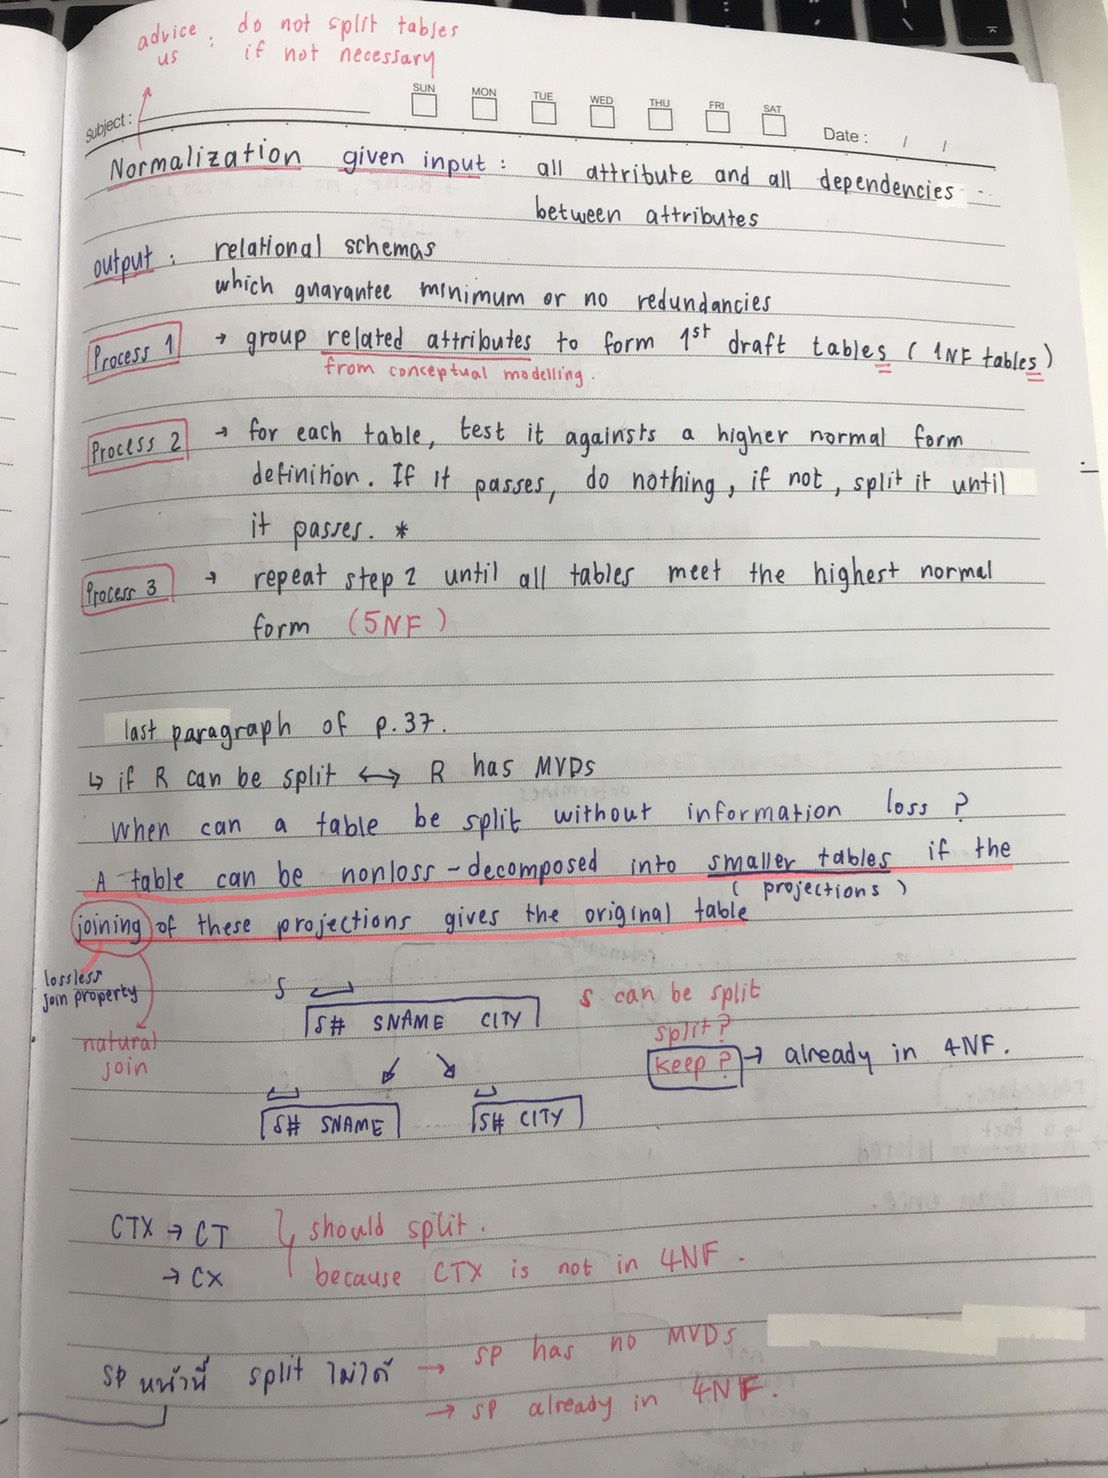 advice : do not split tables
us if not necessary
SUN MON TUE WED THU FRI SAT
Subject : Date : / /
Normalization given input : all attribute and all dependencies
between attributes
output : relational schemas
which guarantee minimum or no redundancies
Process 1 → group related attributes to form 1st draft tables ( 1NF tables )
from conceptual modelling.
Process 2 → for each table, test it againsts a higher normal form
definition. If it passes, do nothing, if not, split it until
it passes. *
Process 3 → repeat step 2 until all tables meet the highest normal
form (5NF)
last paragraph of p.37.
↳ if R can be split ↔ R has MVDs
When can a table be split without information loss ?
A table can be nonloss-decomposed into smaller tables if the
( projections )
joining of these projections gives the original table
lossless
join property
natural
join
S
S# SNAME CITY
S can be split
split ?
keep ? → already in 4NF.
S# SNAME S# CITY
CTX → CT should split.
→ CX because CTX is not in 4NF.
SP หน้านี้ split ไม่ได้ → SP has no MVDs
→ SP already in 4NF.